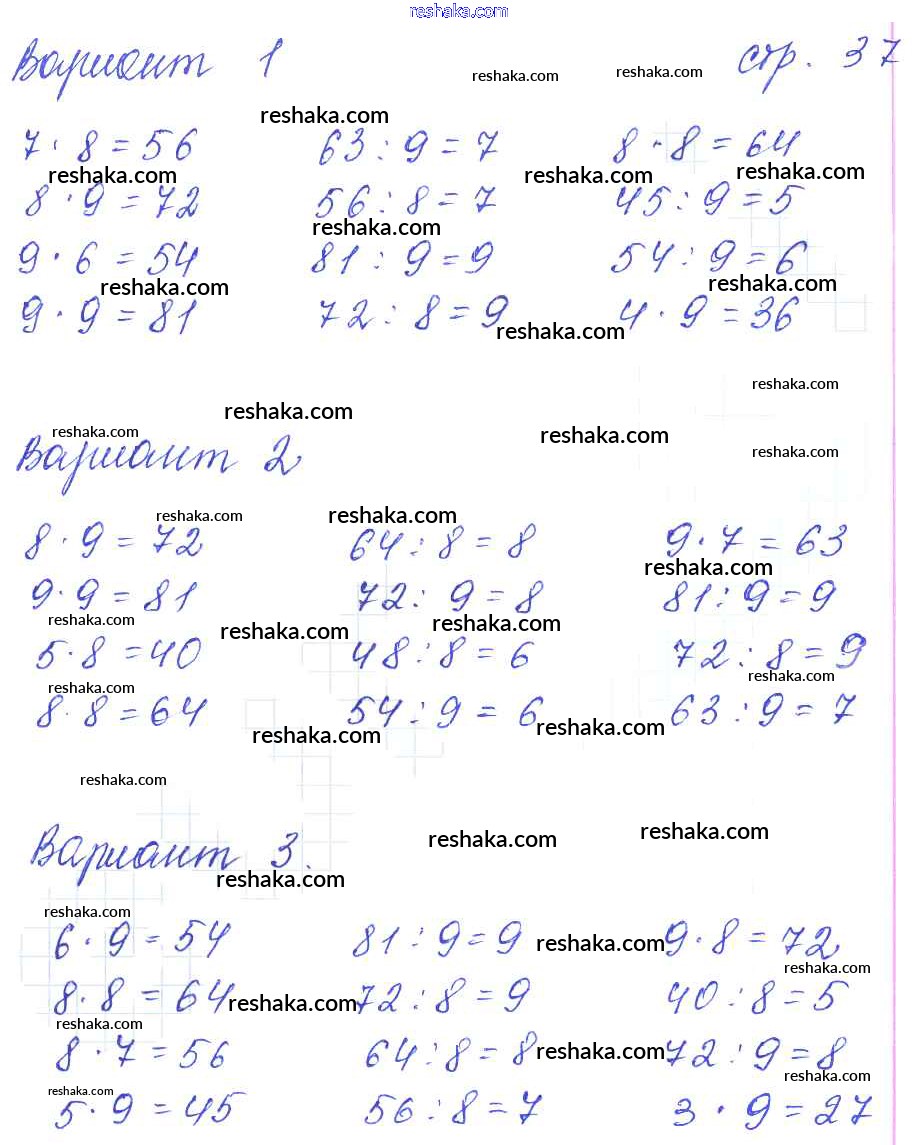 reshaka.com
Вариант 1 reshaka.com reshaka.com стр. 37
reshaka.com
7 · 8 = 56 63 : 9 = 7 8 · 8 = 64
reshaka.com reshaka.com reshaka.com
8 · 9 = 72 56 : 8 = 7 45 : 9 = 5
reshaka.com
9 · 6 = 54 81 : 9 = 9 54 : 9 = 6
reshaka.com reshaka.com
9 · 9 = 81 72 : 8 = 9 4 · 9 = 36
reshaka.com
reshaka.com
reshaka.com reshaka.com
reshaka.com reshaka.com
Вариант 2
reshaka.com
reshaka.com reshaka.com
8 · 9 = 72 64 : 8 = 8 9 · 7 = 63
reshaka.com
9 · 9 = 81 72 : 9 = 8 81 : 9 = 9
reshaka.com reshaka.com reshaka.com
5 · 8 = 40 48 : 8 = 6 72 : 8 = 9
reshaka.com reshaka.com
8 · 8 = 64 54 : 9 = 6 63 : 9 = 7
reshaka.com reshaka.com
reshaka.com
reshaka.com reshaka.com
Вариант 3.
reshaka.com
reshaka.com
6 · 9 = 54 81 : 9 = 9 reshaka.com 9 · 8 = 72
reshaka.com
8 · 8 = 64 reshaka.com 72 : 8 = 9 40 : 8 = 5
reshaka.com
8 · 7 = 56 64 : 8 = 8 reshaka.com 72 : 9 = 8
reshaka.com reshaka.com
5 · 9 = 45 56 : 8 = 7 3 · 9 = 27